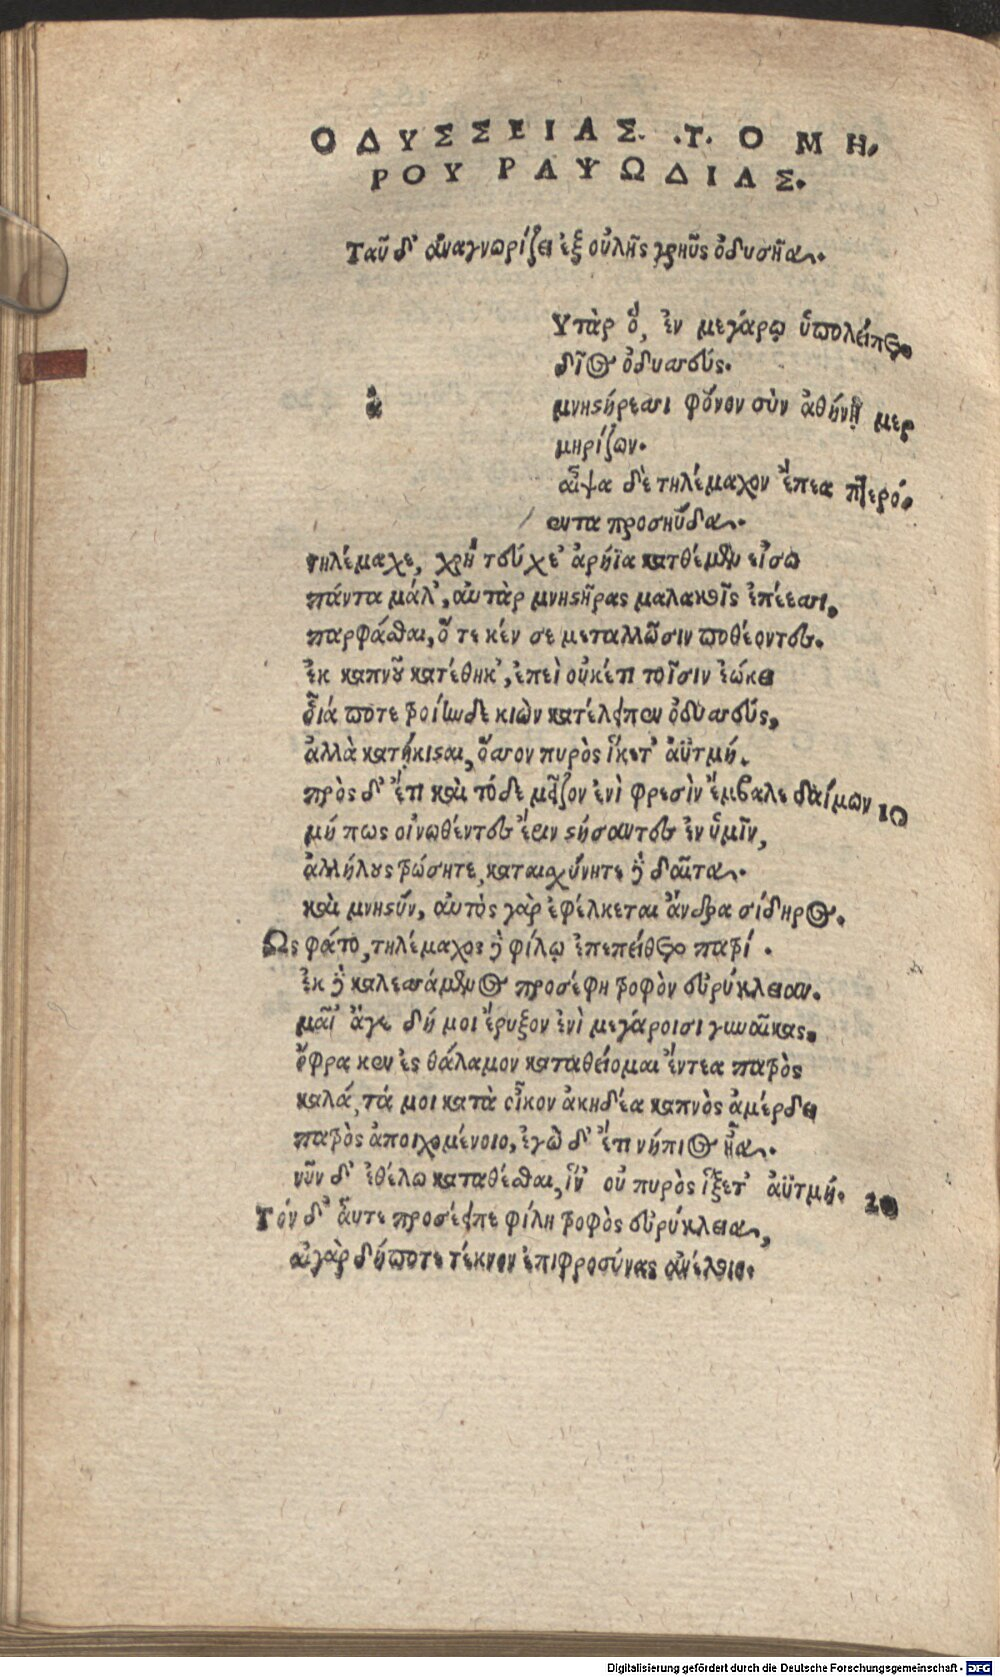 ΟΔΥΣΣΕΙΑΣ .Τ. ΟΜΗ,
ΡΟΥ ΡΑΨΩΔΙΑΣ.
Ταῦ δ' ἀναγνωρίζει ἐξ οὐλῆς γρηῦς ὀδυσῆα.
Υτὰρ ὅ, ἐν μεγάρῳ ὑπολείπετο
δῖος ὀδυσσεύς.
ἀ
μνηστήρεσσι φόνον σὺν ἀθήνῃ μερ
μηρίζων.
αἶψα δὲ τηλέμαχον ἔπεα πτερό,
εντα προσηύδα.
τηλέμαχε, χρὴ τεύχε' ἀρήϊα κατθέμεν εἴσω
πάντα μάλ', αὐτὰρ μνηστῆρας μαλακοῖς ἐπέεσσι,
παρφάσθαι, ὅτε κέν σε μεταλλῶσιν ποθέοντες.
ἐκ καπνοῦ κατέθηκ', ἐπεὶ οὐκέτι τοῖσιν ἐώκει
οἷά ποτε τροίηνδε κιὼν κατέλειπεν ὀδυσσεύς,
ἀλλὰ κατῄκισται, ὅσσον πυρὸς ἵκετ' ἀϋτμή.
πρὸς δ' ἔτι καὶ τόδε μεῖζον ἐνὶ φρεσὶν ἔμβαλε δαίμων 10
μή πως οἰνωθέντες ἔριν στήσαντες ἐν ὑμῖν,
ἀλλήλους τρώσητε, καταισχύνητέ τε δαῖτα.
καὶ μνηστύν, αὐτὸς γὰρ ἐφέλκεται ἄνδρα σίδηρος.
Ως φάτο, τηλέμαχος δὲ φίλῳ ἐπεπείθετο πατρί.
ἐκ δὲ καλεσσάμενος προσέφη τροφὸν εὐρύκλειαν.
μαῖ' ἄγε δή μοι ἔρυξον ἐνὶ μεγάροισι γυναῖκας,
ὄφρα κεν ἐς θάλαμον καταθείομαι ἔντεα πατρὸς
καλά, τά μοι κατὰ οἶκον ἀκηδέα καπνὸς ἀμέρδει
πατρὸς ἀποιχομένοιο, ἐγὼ δ' ἔτι νήπιος ἦα.
νῦν δ' ἐθέλω καταθέσθαι, ἵν' οὐ πυρὸς ἵξετ' ἀϋτμή. 20
Τόν δ' αὖτε προσέειπε φίλη τροφὸς εὐρύκλεια,
αἲγὰρ δήποτε τέκνον ἐπιφροσύνας ἀνέλοιο.
Digitalisierung gefördert durch die Deutsche Forschungsgemeinschaft - DFG